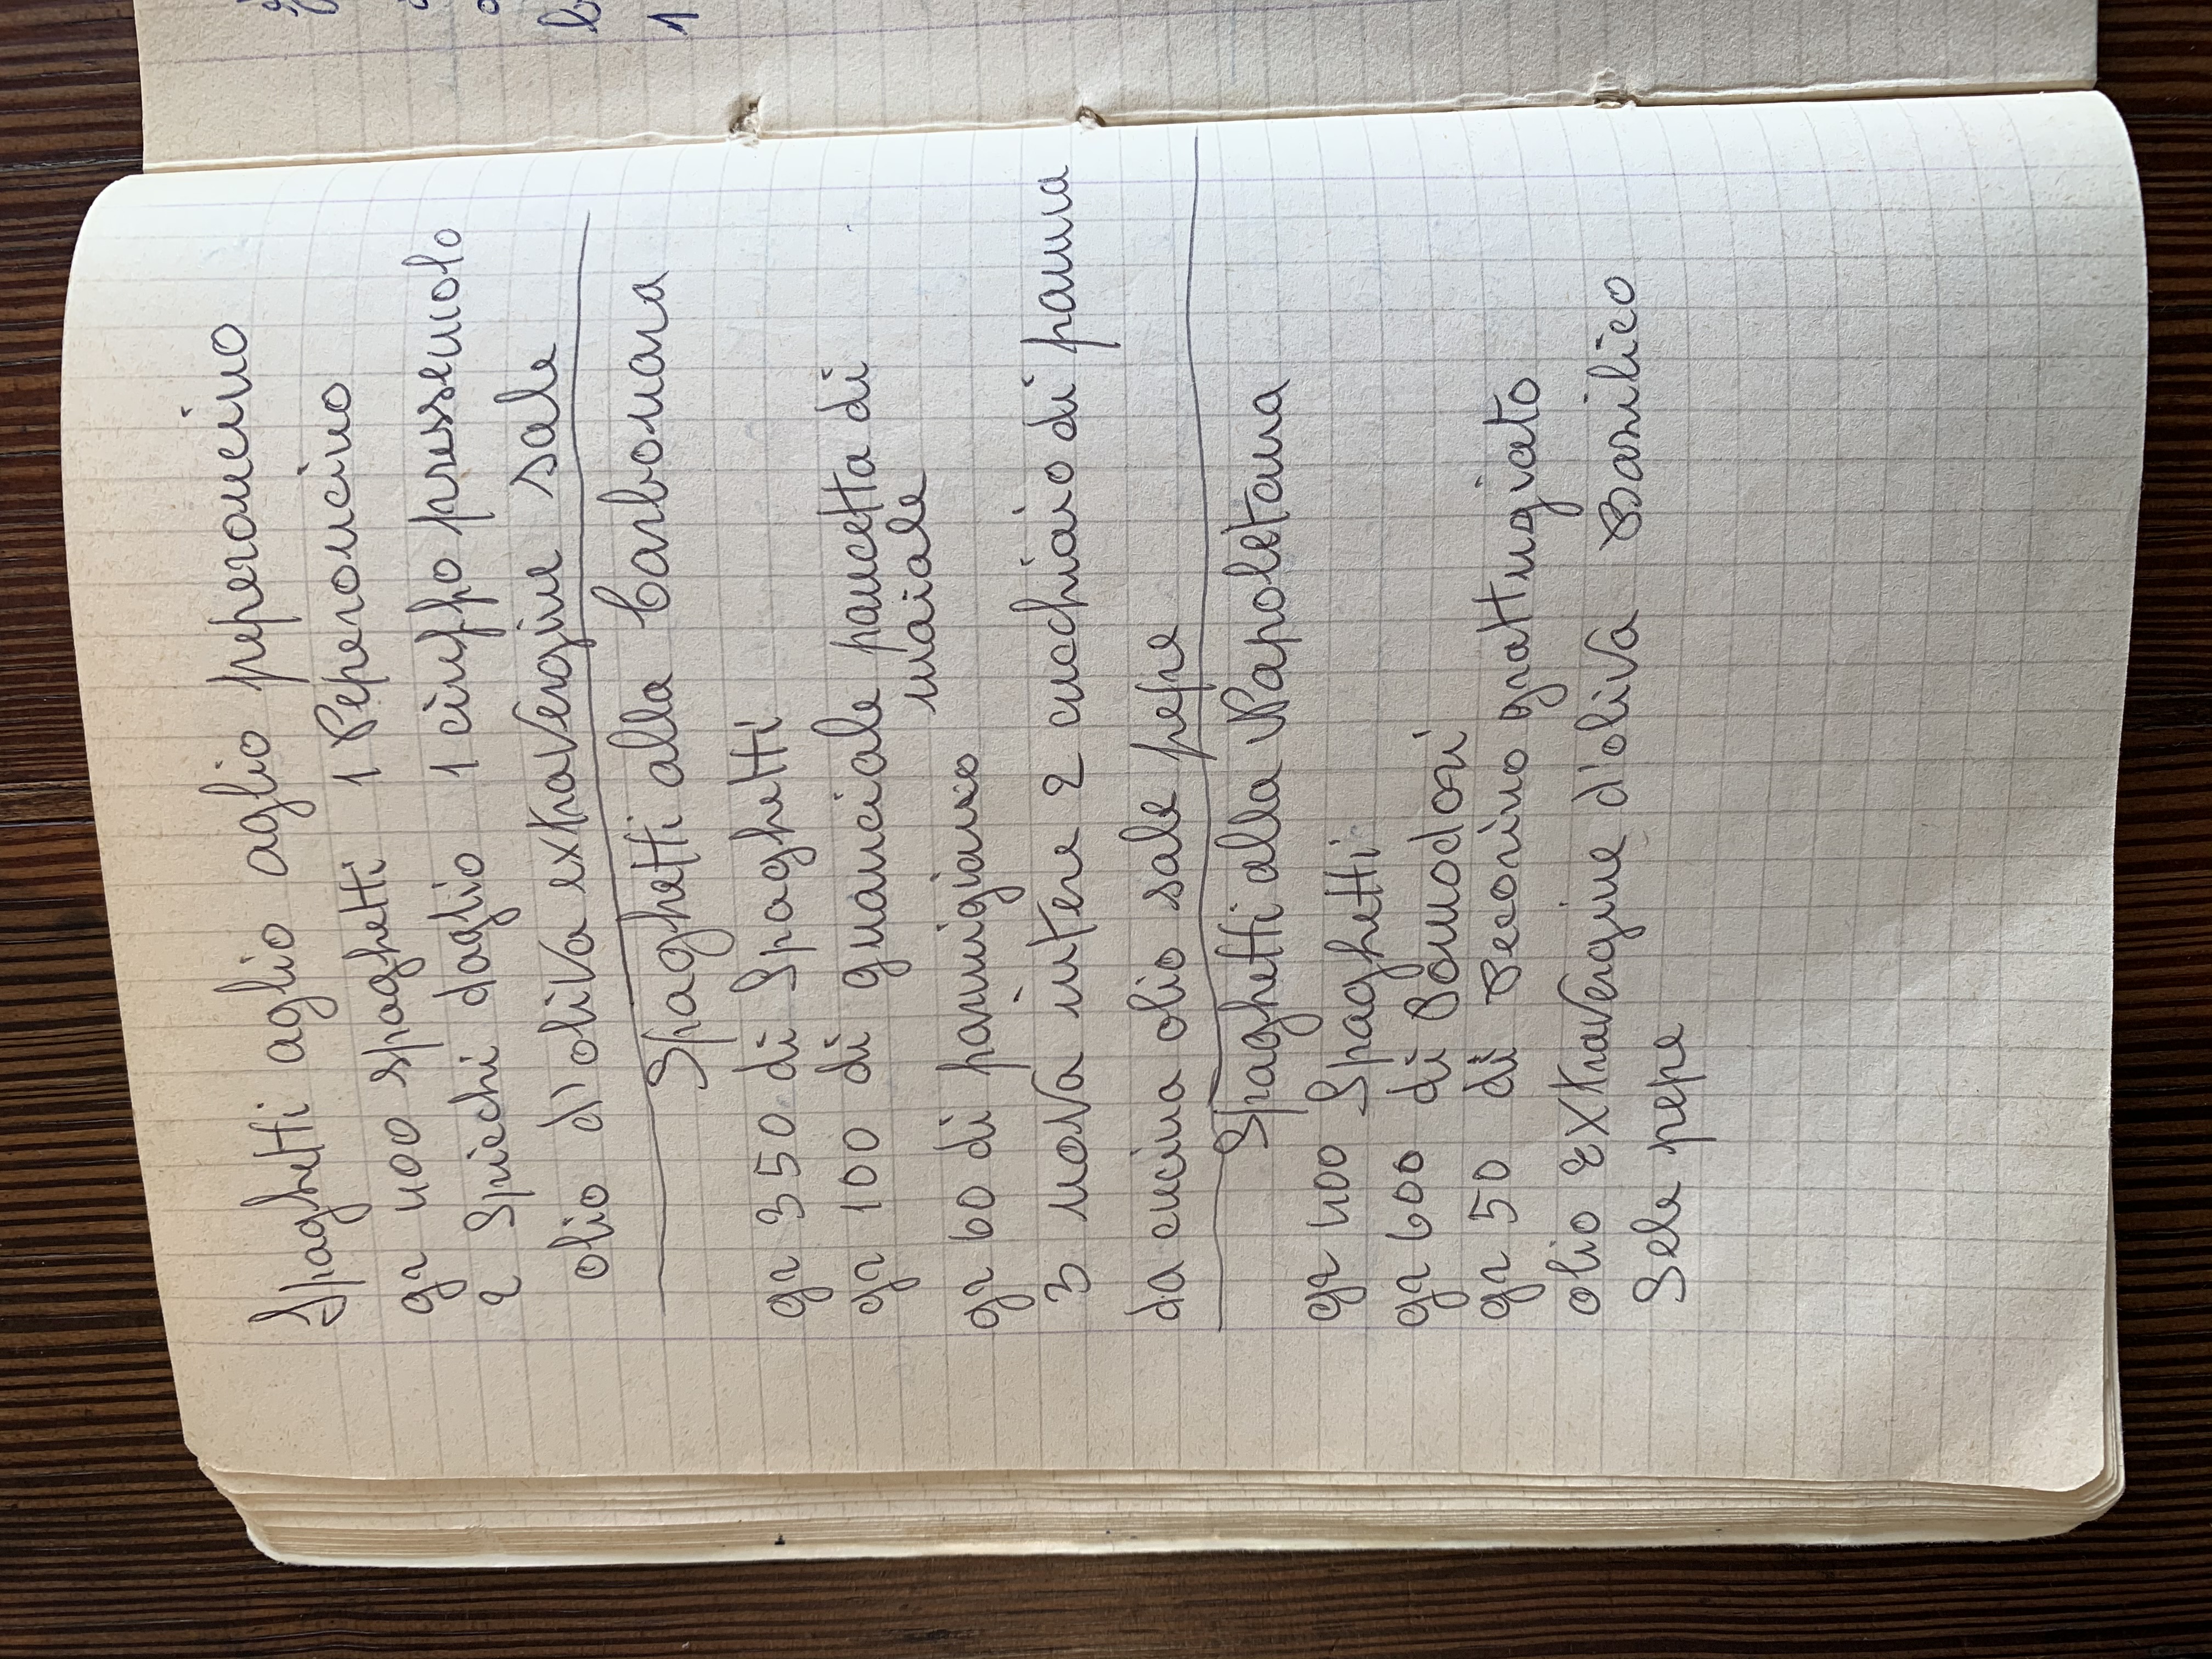 Spaghetti aglio aglio peperoncino
gr 400 spaghetti 1 Peperoncino
2 Spicchi daglio 1 ciuffo pressemolo
olio d'oliva extravergine sale
Spaghetti alla Carbonara
gr 350 di Spaghetti
gr 100 di guanciale pancetta di
maiale
gr 60 di parmigiano
3 uova intere 2 cucchiaio di panna
da cucina olio sale pepe
Spaghetti alla Napoletana
gr 400 Spaghetti
gr 600 di Pomodori
gr 50 di Pecorino grattugiato
olio Extravergine d'oliva Basilico
Sele pepe